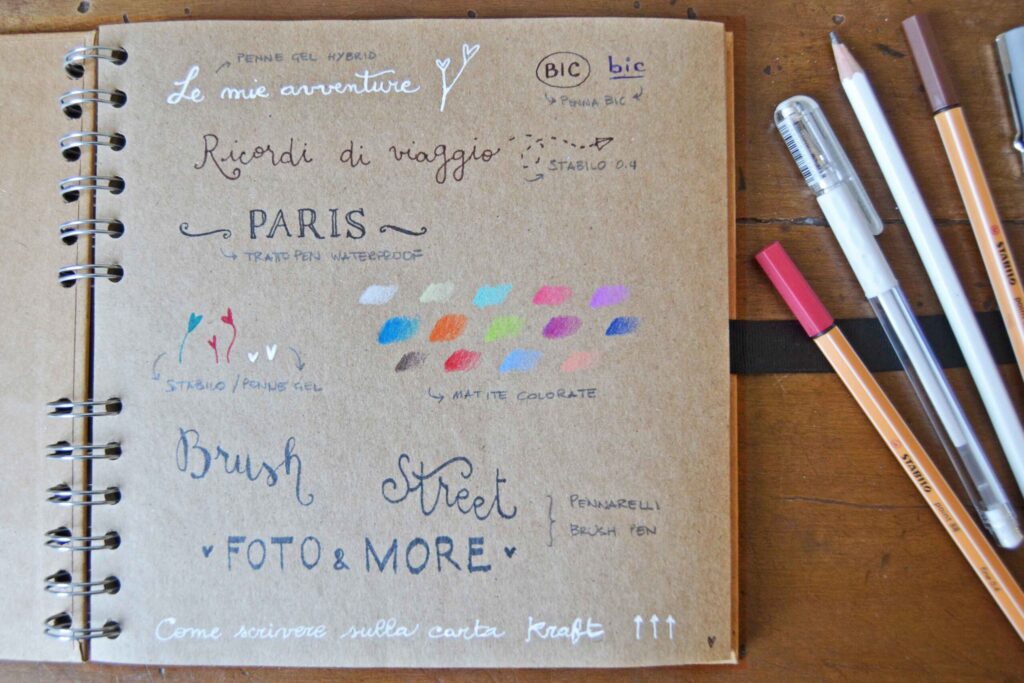 PENNE GEL HYBRID
Le mie avventure
BIC bic
PENNA BIC
Ricordi di viaggio
STABILO 0.4
PARIS
TRATTO PEN WATERPROOF
STABILO / PENNE GEL
MATITE COLORATE
Brush
Street
PENNARELLI
BRUSH PEN
FOTO & MORE
Come scrivere sulla carta kraft
STABILO point 88
STABILO